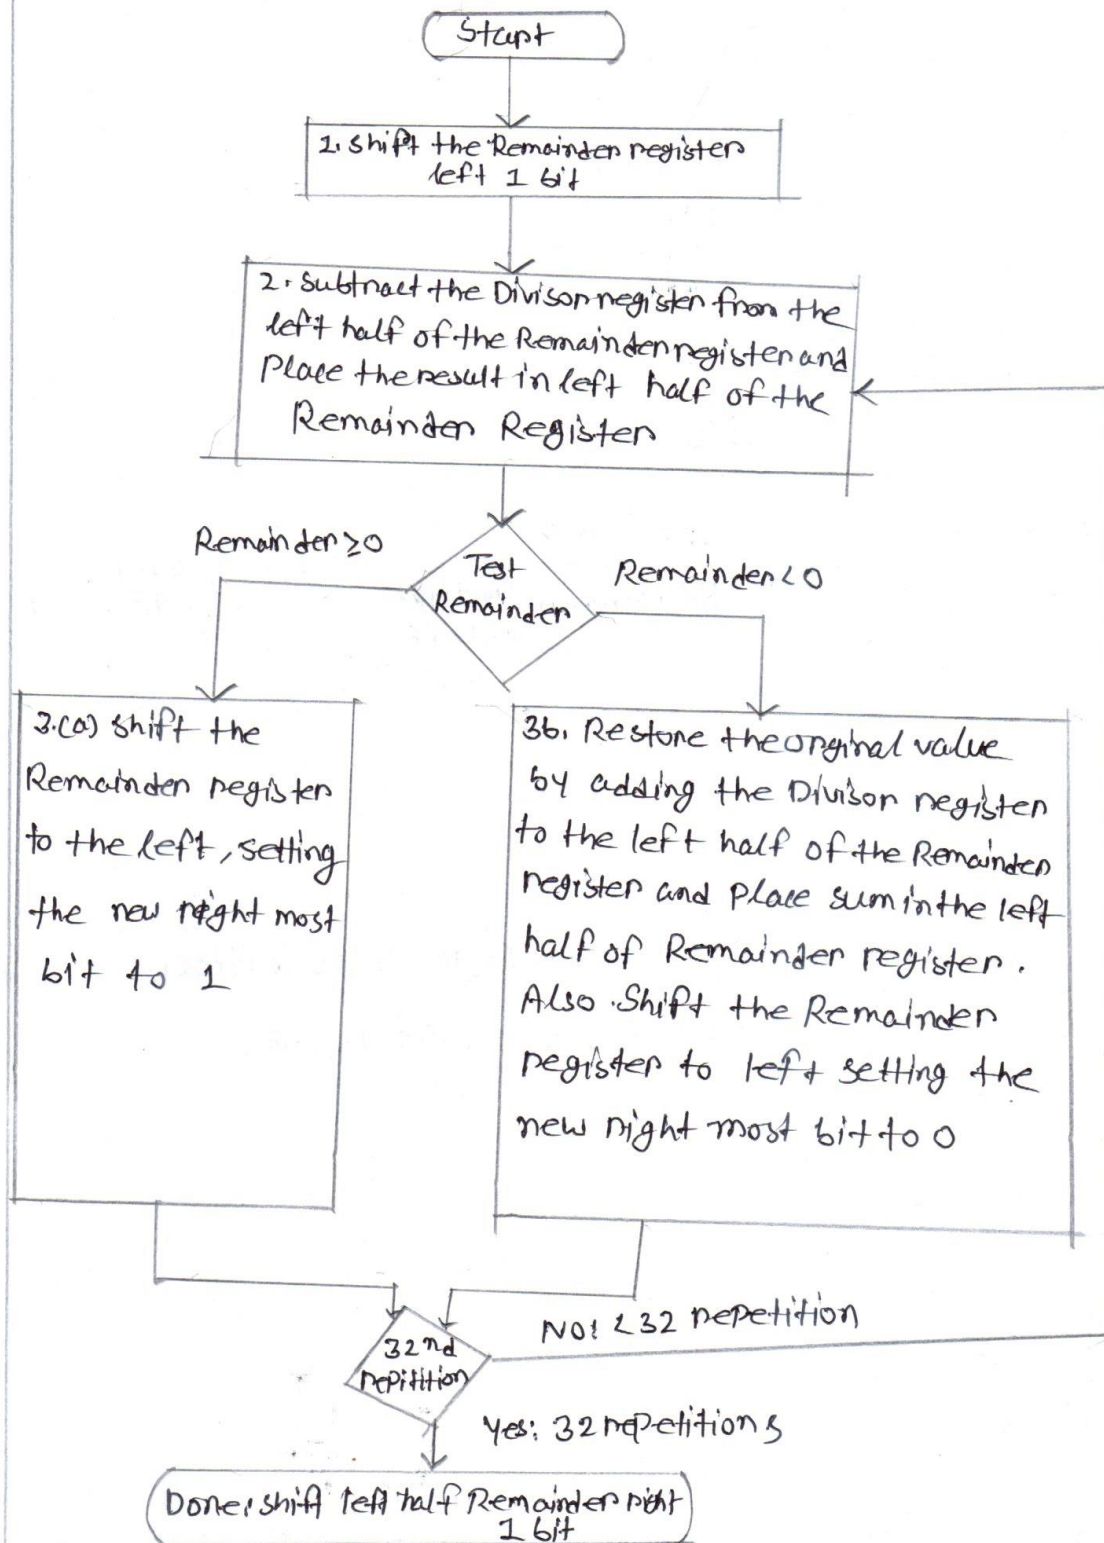 Start
1. Shift the Remainder register
left 1 bit
2. Subtract the Divisor register from the
left half of the Remainder register and
Place the result in left half of the
Remainder Register
Remainder ≥ 0
Test
Remainder
Remainder < 0
3.(a) Shift the
Remainder register
to the left, setting
the new right most
bit to 1
3b. Restore the orginal value
by adding the Divisor register
to the left half of the Remainder
register and Place sum in the left
half of Remainder register.
Also Shift the Remainder
register to left setting the
new right most bit to 0
32nd
repitition
No: < 32 repetition
Yes: 32 repetitions
Done: shift left half Remainder right
1 bit